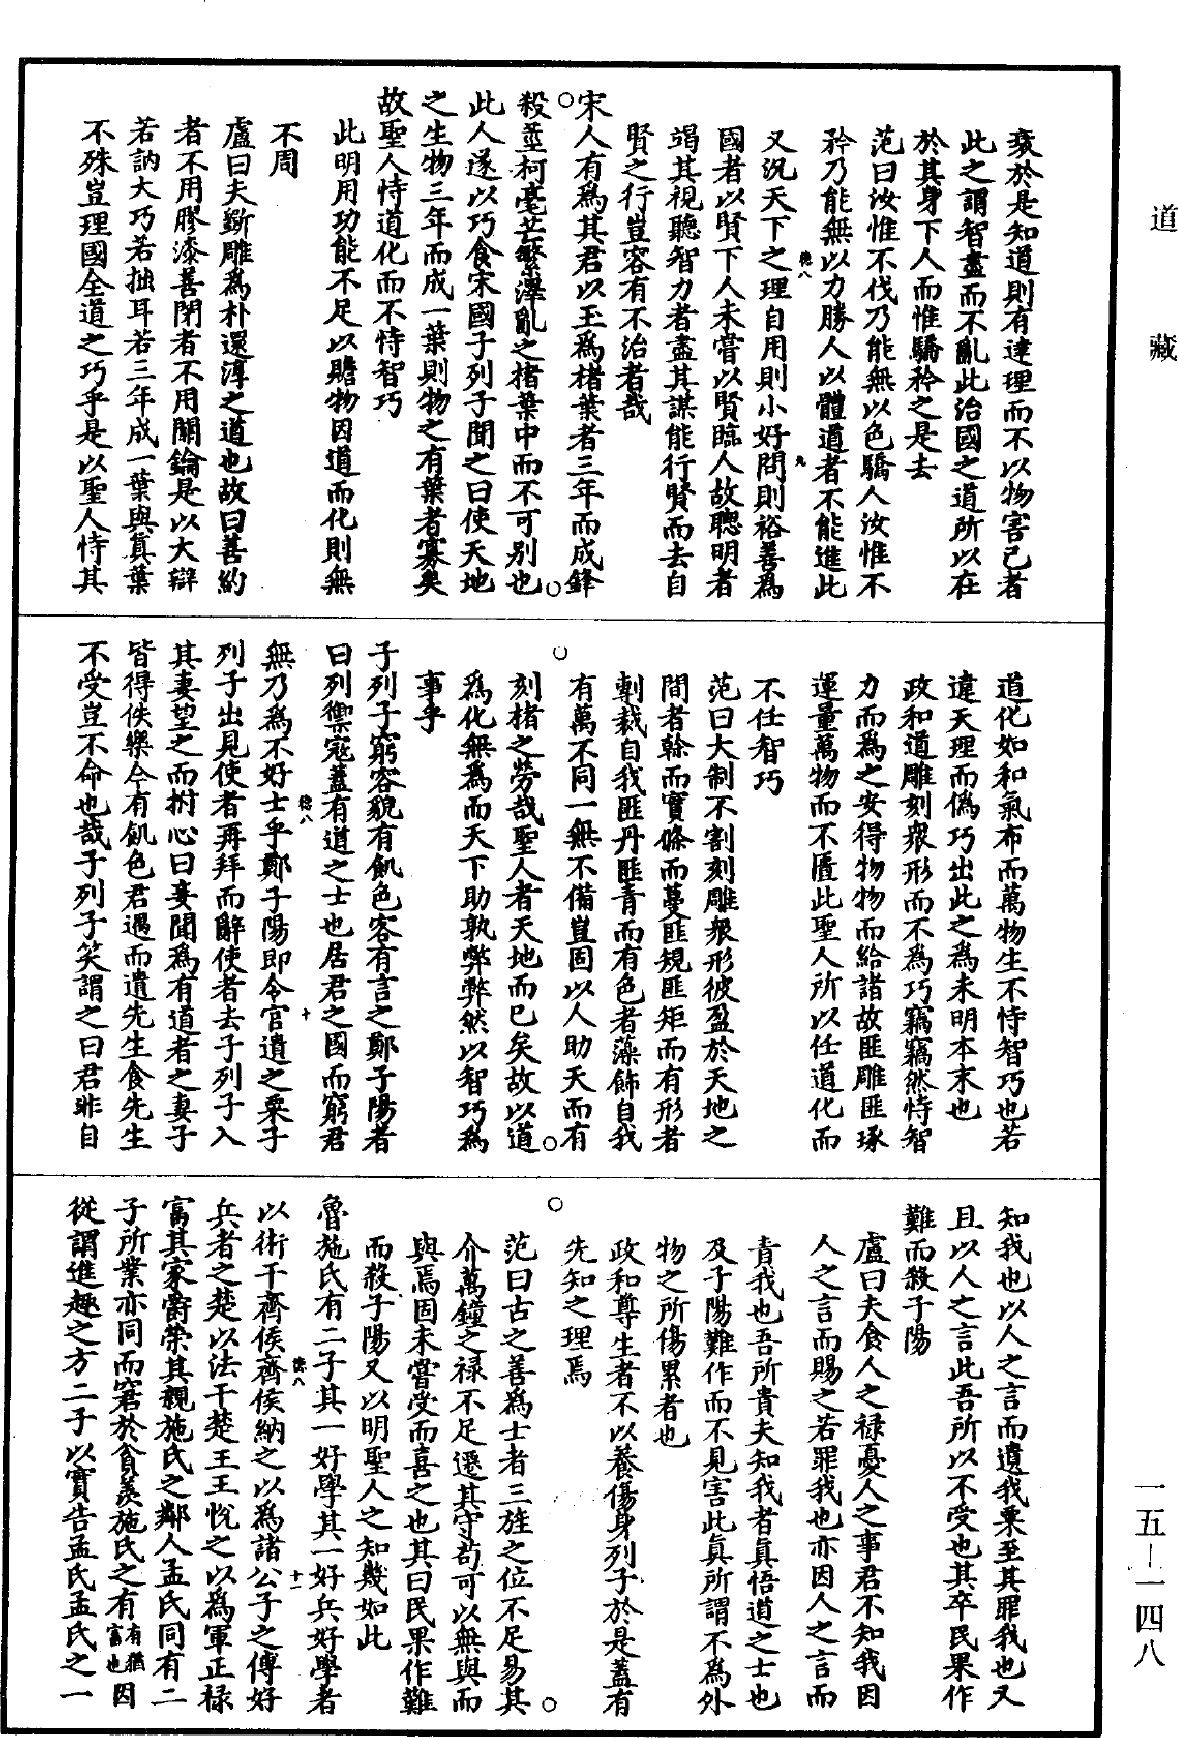 道藏
衰於是知道則有達理而不以物害已者
此之謂智盡而不亂此治國之道所以在
於其身下人而惟驕矜之是去
范曰汝惟不伐乃能無以色驕人汝惟不
矜乃能無以力勝人以體道者不能進此
又況天下之理自用則小好問則裕善為
國者以賢下人未嘗以賢臨人故聰明者
竭其視聽智力者盡其謀能行賢而去自
賢之行豈容有不治者哉
宋人有為其君以玉為楮葉者三年而成鋒
殺莖柯毫芒繁澤亂之楮葉中而不可別也
此人遂以巧食宋國子列子聞之曰使天地
之生物三年而成一葉則物之有葉者寡矣
故聖人恃道化而不恃智巧
此明用功能不足以贍物因道而化則無
不周
盧曰夫斵雕為朴還淳之道也故曰善約
者不用膠漆善閉者不用關鑰是以大辯
若訥大巧若拙耳若三年成一葉與真葉
不殊豈理國全道之巧乎是以聖人恃其
道化如和氣布而萬物生不恃智巧也若
違天理而偽巧出此之為未明本末也
政和道雕刻衆形而不為巧竊竊然恃智
力而為之安得物物而給諸故匪雕匪琢
運量萬物而不匱此聖人所以任道化而
不任智巧
范曰大制不割刻雕衆形彼盈於天地之
間者榦而實條而蔓匪規匪矩而有形者
剸裁自我匪丹匪青而有色者藻飾自我
有萬不同一無不備豈固以人助天而有
刻楮之勞哉聖人者天地而已矣故以道
為化無為而天下助孰弊弊然以智巧為
事乎
子列子窮容貌有飢色客有言之鄭子陽者
曰列禦寇蓋有道之士也居君之國而窮君
無乃為不好士乎鄭子陽即令官遺之粟子
列子出見使者再拜而辭使者去子列子入
其妻望之而拊心曰妾聞為有道者之妻子
皆得佚樂今有飢色君過而遺先生食先生
不受豈不命也哉子列子笑謂之曰君非自
知我也以人之言而遺我粟至其罪我也又
且以人之言此吾所以不受也其卒民果作
難而殺子陽
盧曰夫食人之禄憂人之事君不知我因
人之言而賜之若罪我也亦因人之言而
責我也吾所貴夫知我者真悟道之士也
及子陽難作而不見害此真所謂不為外
物之所傷累者也
政和尊生者不以養傷身列子於是蓋有
先知之理焉
范曰古之善為士者三旌之位不足易其
介萬鐘之禄不足遷其守苟可以無與而
與焉固未嘗受而喜之也其曰民果作難
而殺子陽又以明聖人之知幾如此
魯施氏有二子其一好學其一好兵好學者
以術干齊侯齊侯納之以為諸公子之傅好
兵者之楚以法干楚王王悅之以為軍正禄
富其家爵榮其親施氏之鄰人孟氏同有二
子所業亦同而窘於貧羨施氏之有有猶富也因
從謂進趣之方二子以實告孟氏孟氏之一
德八 九
德八 十
德八 十一
一五—一四八